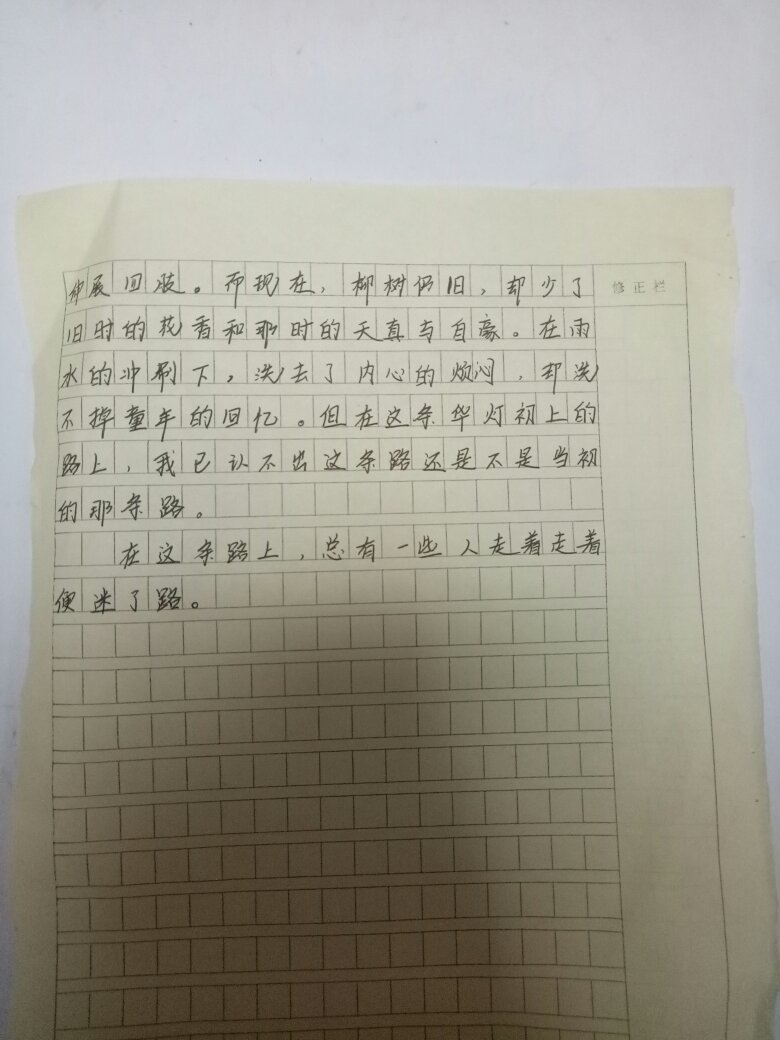 伸展回肢。而现在，柳树仍旧，却少了
修正栏
旧时的花香和那时的天真与自豪。在雨
水的冲刷下，洗去了内心的烦闷，却洗
不掉童年的回忆。但在这条华灯初上的
路上，我已认不出这条路还是不是当初
的那条路。
在这条路上，总有一些人走着走着
便迷了路。